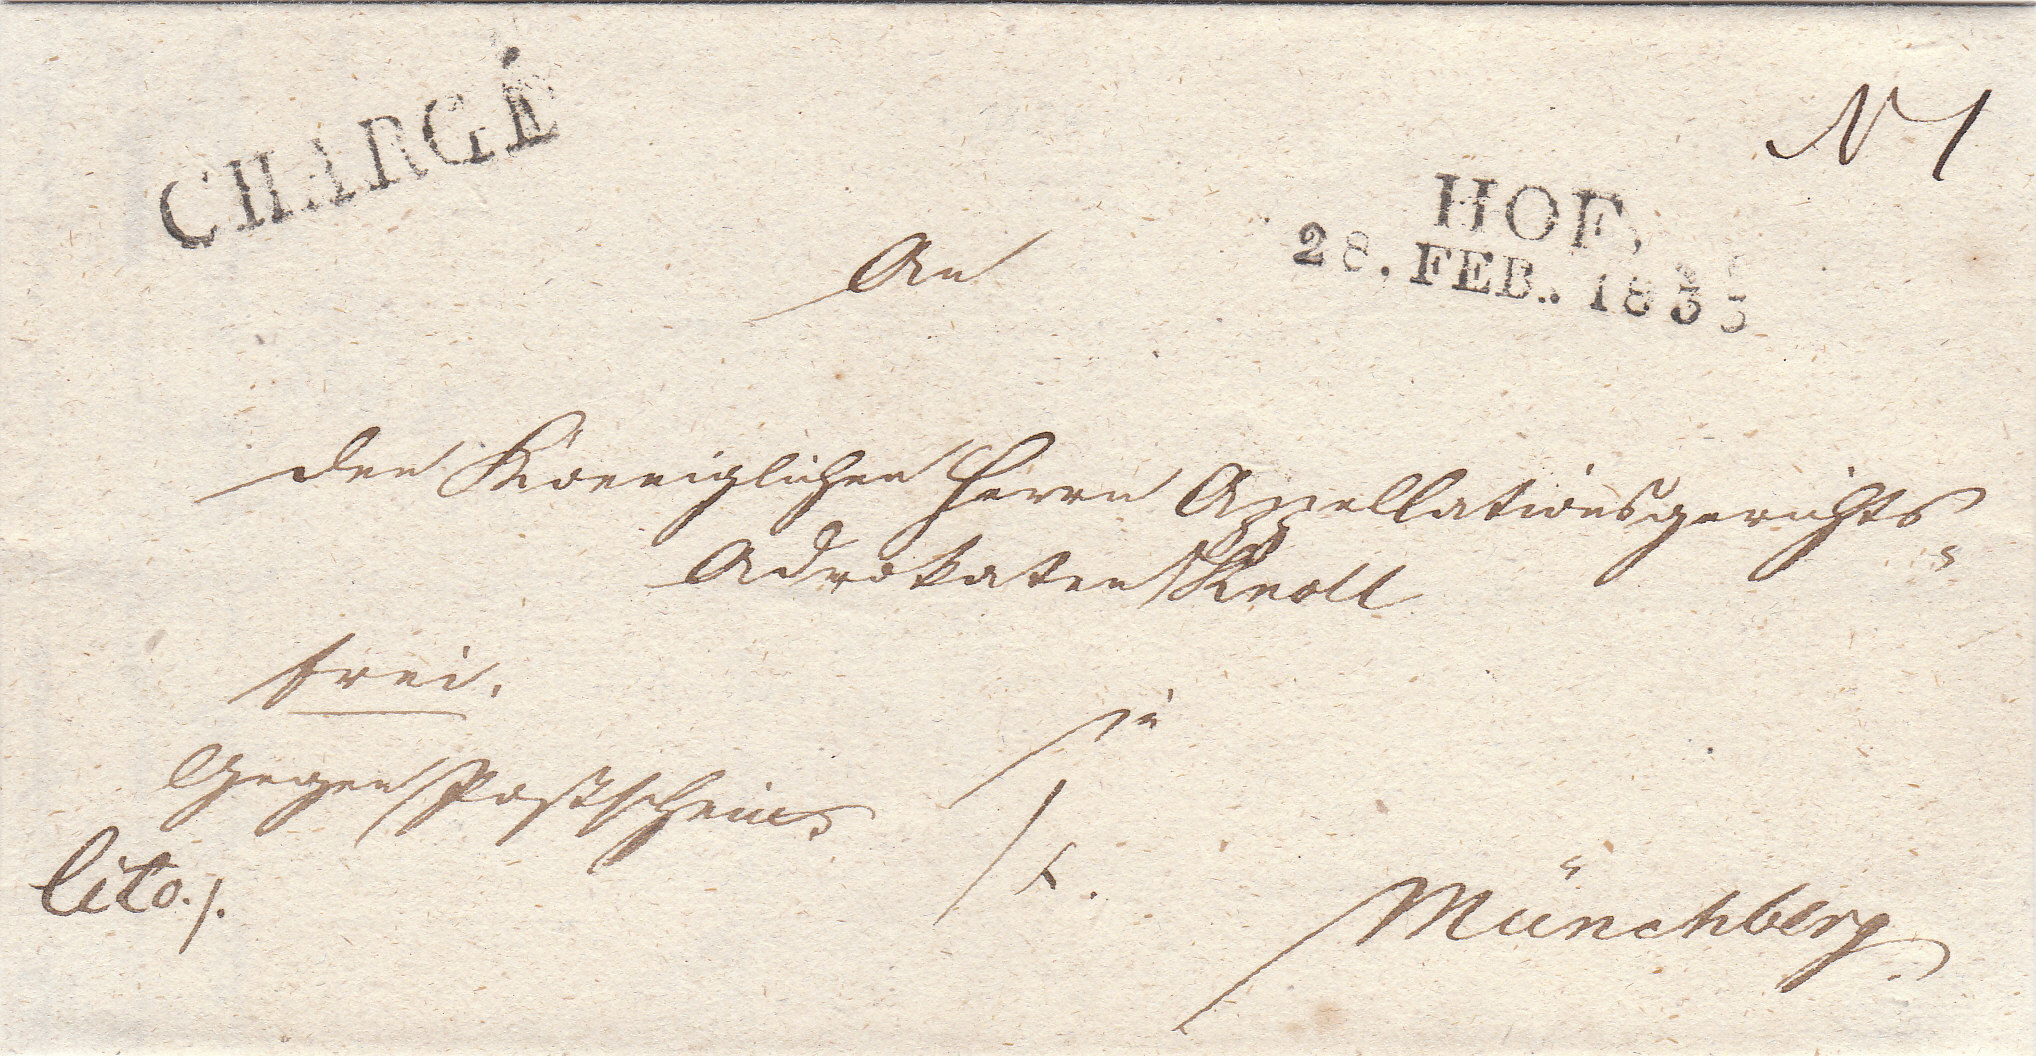 CHARGÉ
N 1
HOF,
28. FEB.. 1835
An
den Koeniglichen Herrn Appellationsgerichts=
Advokaten Knoll
frei.
in
Gegen Postschein.
cito./.
Münchberg.